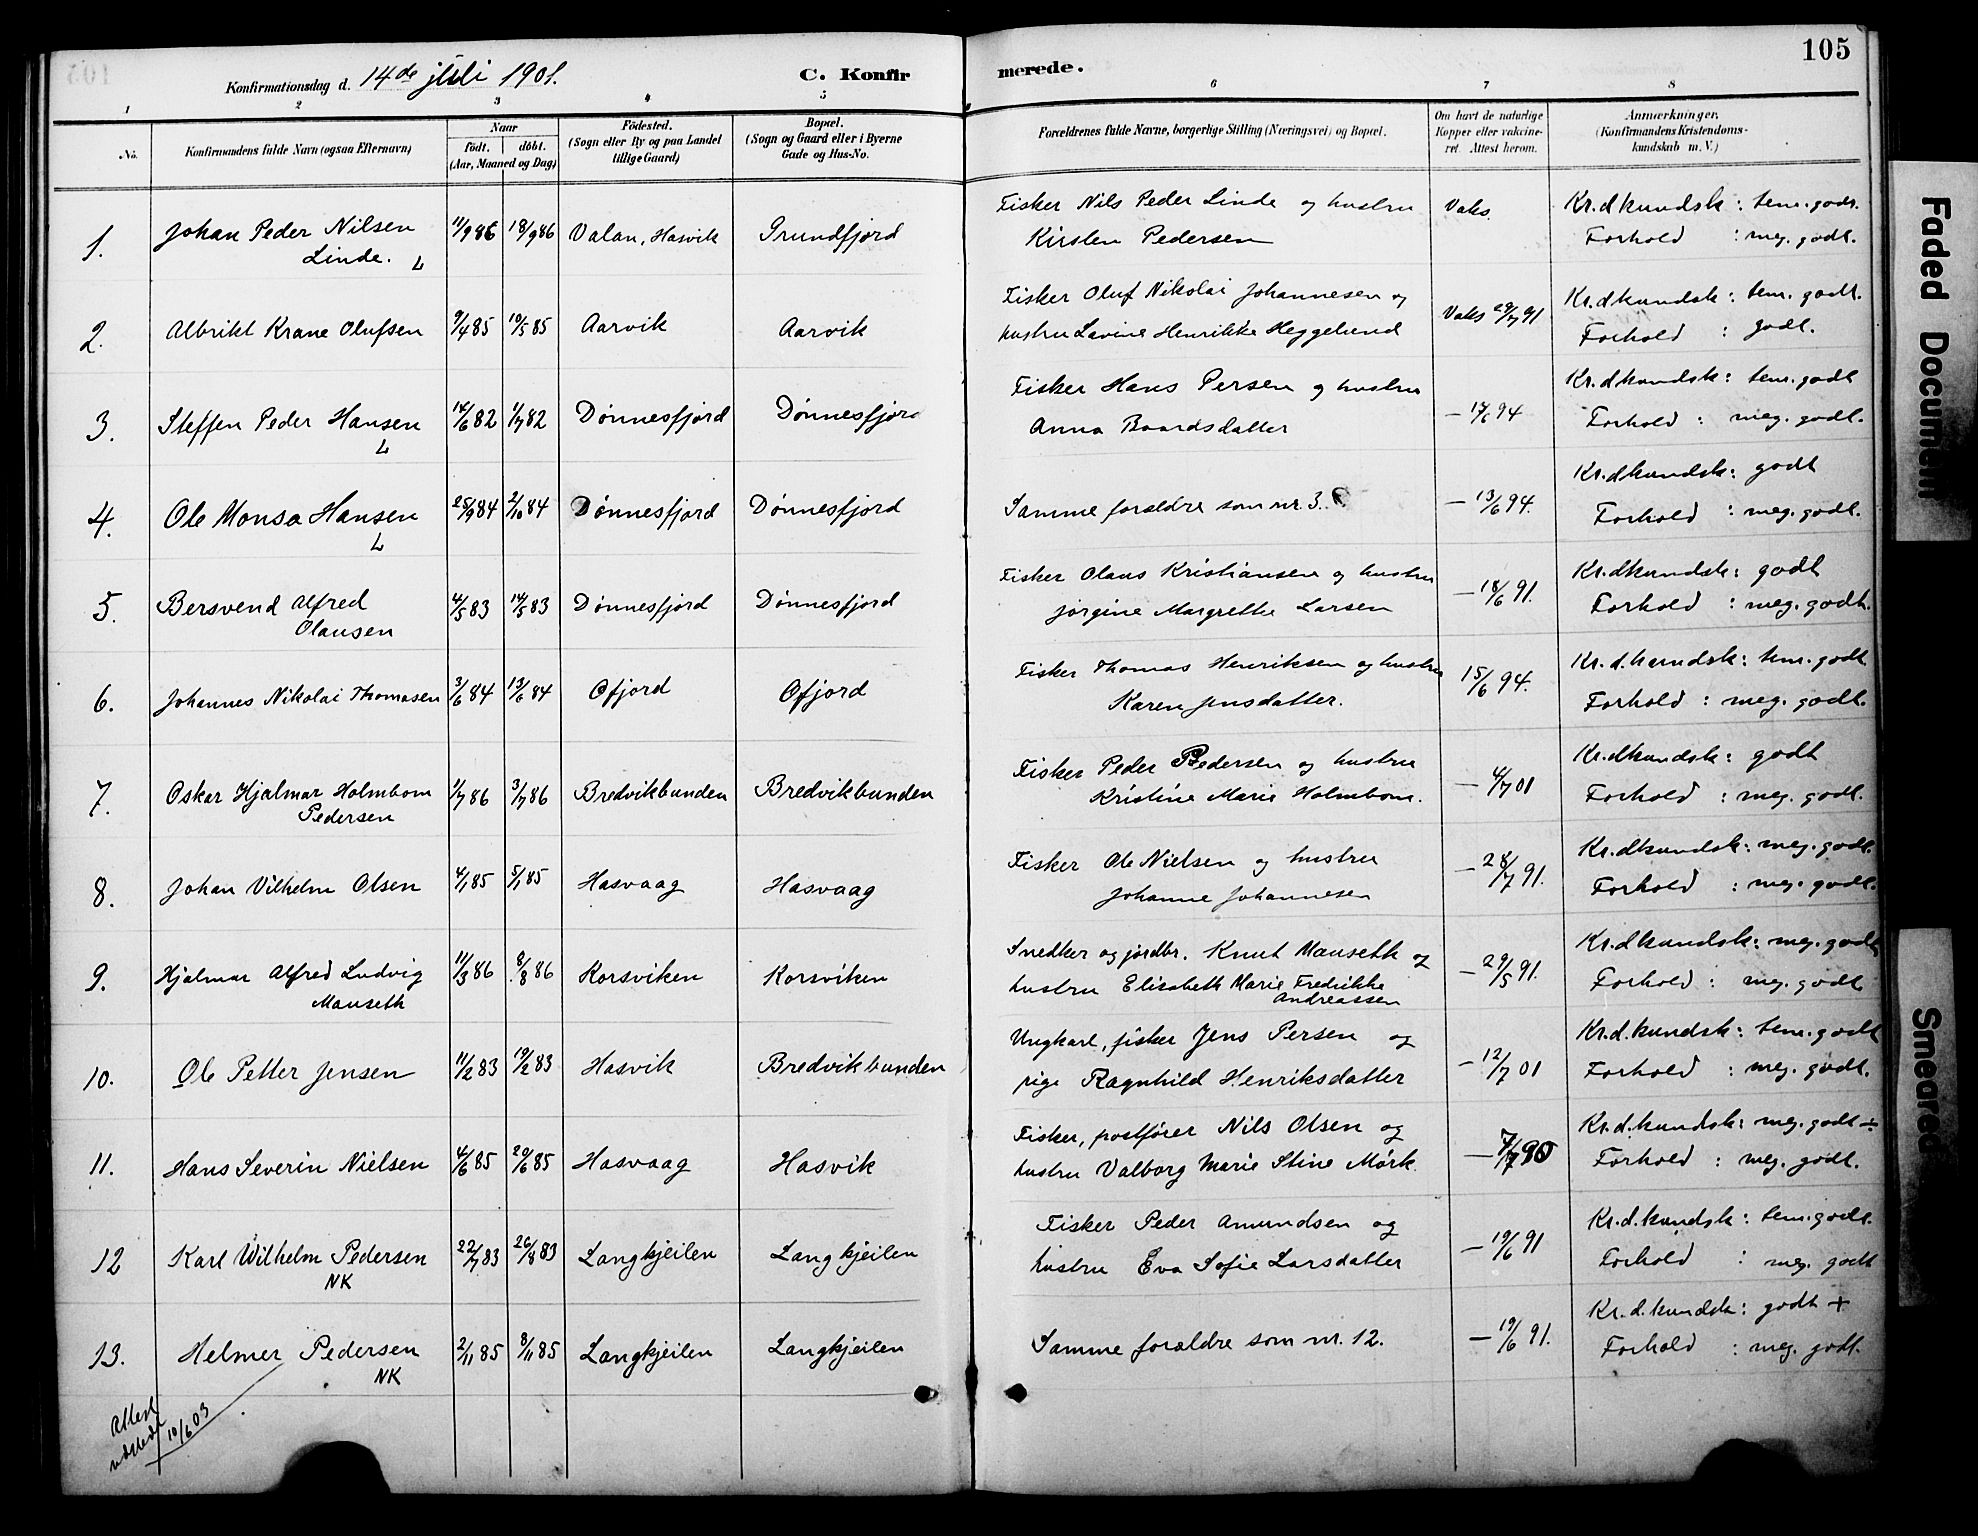 105
Konfirmationsdag d. 14de juli 1901.
C. Konfirmerede.
1 2 3 4 5 6 7 8
No.
Konfirmandens fulde Navn (ogsaa Efternavn)
Naar
födt. döbt.
(Aar, Maaned og Dag)
Födested.
(Sogn eller By og paa Landet
tillige Gaard)
Bopæl.
(Sogn og Gaard eller i Byerne
Gade og Hus-No.
Forældrenes fulde Navne, borgerlige Stilling (Næringsvei) og Bopæl.
Om havt de naturlige
Kopper eller vakcine-
ret. Attest herom.
Anmærkninger.
(Konfirmandens Kristendoms-
kundskab m. V.)
1. Johan Peder Nilsen 11/9 86 18/9 86 Valan, Hasvik Grundfjord Fisker Nils Peder Linde og hustru Vaks. Kr.dkundsk: tem. godt.
Linde. L Kirsten Pedersen Forhold : meg. godt.
2. Albrikt Krane Olufsen 9/4 85 10/5 85 Aarvik Aarvik Fisker Oluf Nikolai Johannesen og Vaks 29/7 91 Kr.dkundsk: tem. godt.
hustru Lavine Henrikke Heggelund Forhold : godt.
3. Steffen Peder Hansen 14/6 82 1/7 82 Dønnesfjord Dønnesfjord Fisker Hans Persen og hustru — 17/6 94 Kr.dkundsk: tem. godt
L Anna Baardsdatter Forhold : meg. godt.
4. Ole Monsa Hansen 25/9 84 2/10 84 Dønnesfjord Dønnesfjord Samme forældre som nr. 3. — 13/6 94. Kr.dkundsk: godt
L Forhold : meg. godt.
5. Bersvend Alfred 4/5 83 14/5 83 Dønnesfjord Dønnesfjord Fisker Olaus Kristiansen og hustru — 18/6 91. Kr.dkundsk: godt
Olausen Jørgine Margrethe Larsen Forhold : meg. godt.
6. Johannes Nikolai Thomasen 3/6 84 13/6 84 Ofjord Ofjord Fisker Thomas Henriksen og hustru 15/6 94. Kr.d.kundsk: tem. godt
Karen Jensdatter. Forhold : meg. godt.
7. Oskar Hjalmar Holmbom 1/7 86 3/7 86 Bredvikbunden Bredvikbunden Fisker Peder Pedersen og hustru — 4/7 01 Kr.dkundsk: godt
Pedersen Kristine Marie Holmbom. Forhold : meg. godt.
8. Johan Vilhelm Olsen 4/1 85 5/1 85 Hasvaag Hasvaag Fisker Ole Nielsen og hustru — 28/7 91. Kr.dkundsk: meg. godt.
Johanne Johannesen Forhold : meg. godt.
9. Hjalmar Alfred Ludvig 11/3 86 8/8 86 Korsviken Korsviken Snedker og jordbr. Knut Mauseth og — 29/5 91. Kr.dkundsk: meg. godt
Mauseth hustru Elisabeth Marie Fredrikke Forhold : meg. godt
Andreassen
10. Ole Petter Jensen 11/2 83 19/2 83 Hasvik Bredvikbunden Ungkarl, fisker Jens Persen og — 12/7 01 Kr.d.kundsk: tem. godt
pige Ragnhild Henriksdatter Forhold : meg. godt.
11. Hans Severin Nielsen 4/6 85 20/6 85 Hasvaag Hasvik Fisker, postfører Nils Olsen og — 7/7 90 Kr.d.kundsk: meg. godt ÷
hustru Valborg Marie Stine Mørk. Forhold : meg. godt.
12 Karl Wilhelm Pedersen 22/7 83 26/8 83 Langkjeilen Langkjeilen Fisker Peder Amundsen og — 19/6 91 Kr.d.kundsk: tem. godt.
NK hustru Eva Sofie Larsdatter Forhold : meg. godt
13. Helmer Pedersen 2/11 85 8/11 85 Langkjeilen Langkjeilen Samme forældre som nr. 12. — 19/6 91. Kr.d.kundsk: godt +
NK Forhold : meg. godt.
Attest
udstedt 10/6 03
Faded Document
Smeared